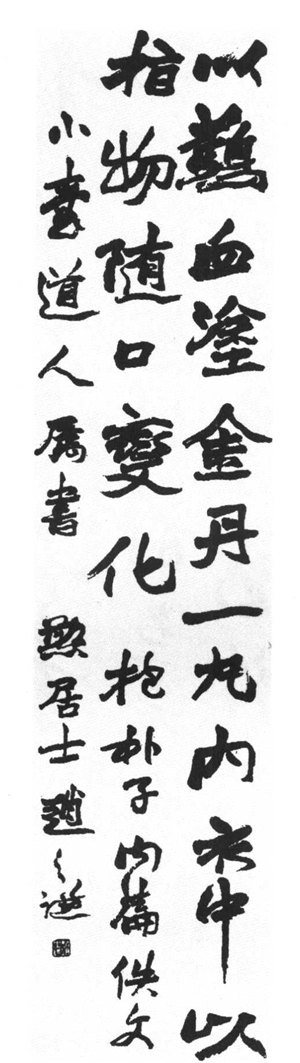 以血塗金丹一丸内衣中以
指物随口變化 抱朴子内篇佚文
小道人属書 居士趙之謙